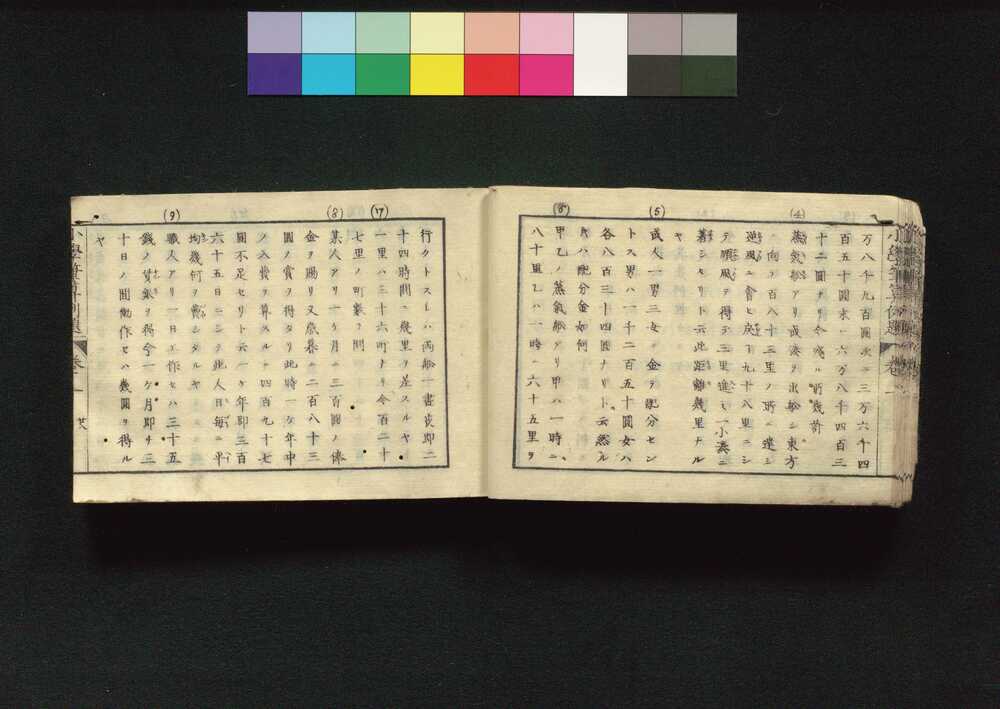 万八千九百圓次ニ三万六千四
百五十圓末ニ六万八千四百三
十二圓ナリ今残ル所幾前
(4)
蒸氣船アリ或湊ヲ出船シ東方
ニ向フ百八十三里ノ時ニ遭シ
逆風ニ會ヒ戻ㇽ丁九十八里ニシ
テ順風ヲ得テ三里進ミ一小湊ニ
著シセリト云此距離幾里ナル
ヤ
(5)
或人一男三女ニ金ヲ配分セン
トス男ハ一千二百五十圓女ハ
各八百三十四圓ナリト云然ル
片ハ配分金如何
(6)
甲乙ノ蒸氣船アリ甲ハ一時ニ
八十里乙ハ一時ニ六十五里ヲ
行クトスレハ両船一晝夜即二
十四時間ニ幾里ヲ差スルヤ
(7)
一里ハ三十六町ナリ今百二十
七里ノ町數ヲ問
(8)
某人アリ一ヶ月ニ三百圓ノ俸
金ヲ賜リ又歳暮ニ二百八十三
圓ノ賞ヲ得タリ此時一ヶ年中
ノ入費ヲ算スルニ四百九十七
圓不足セリト云一ヶ年即三百
六十五日ニシテ此人日毎ニ平
均幾何ヲ費シタルヤ
(9)
職人アリ一日工作セハ三十五
錢ノ賃銀ヲ得今一ヶ月即チ三
十日ノ間働作セハ幾圓ヲ得ル
ヤ
小學筆算例題 卷一